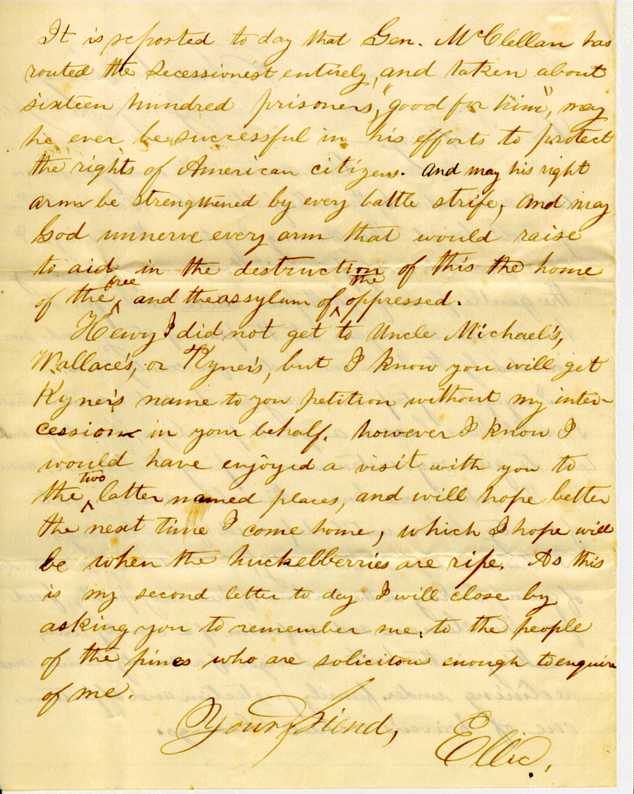 It is reported to day that Gen. McClellan has
routed the Secessionist entirely, and taken about
sixteen hundred prisoners, "good for him", may
he ever be successful in his efforts to protect
the rights of American citizens. And may his right
arm be strengthened by every battle strife, And may
God unnerve every arm that would raise
to aid in the destruction of this the home
of the free, and the assylum of the oppressed.
Henry I did not get to Uncle Michael's,
Wallace's, or Kyner's, but I know you will get
Kyner's name to you petition without my inter-
cession in your behalf. however I know I
would have enjoyed a visit with you to
the two latter named places, and will hope better
the next time I come home, which I hope will
be when the huckelberries are ripe. As this
is my second letter to day I will close by
asking you to remember me, to the people
of the pines who are solicitou enough to enquire
of me.
Your friend,
Ellie.